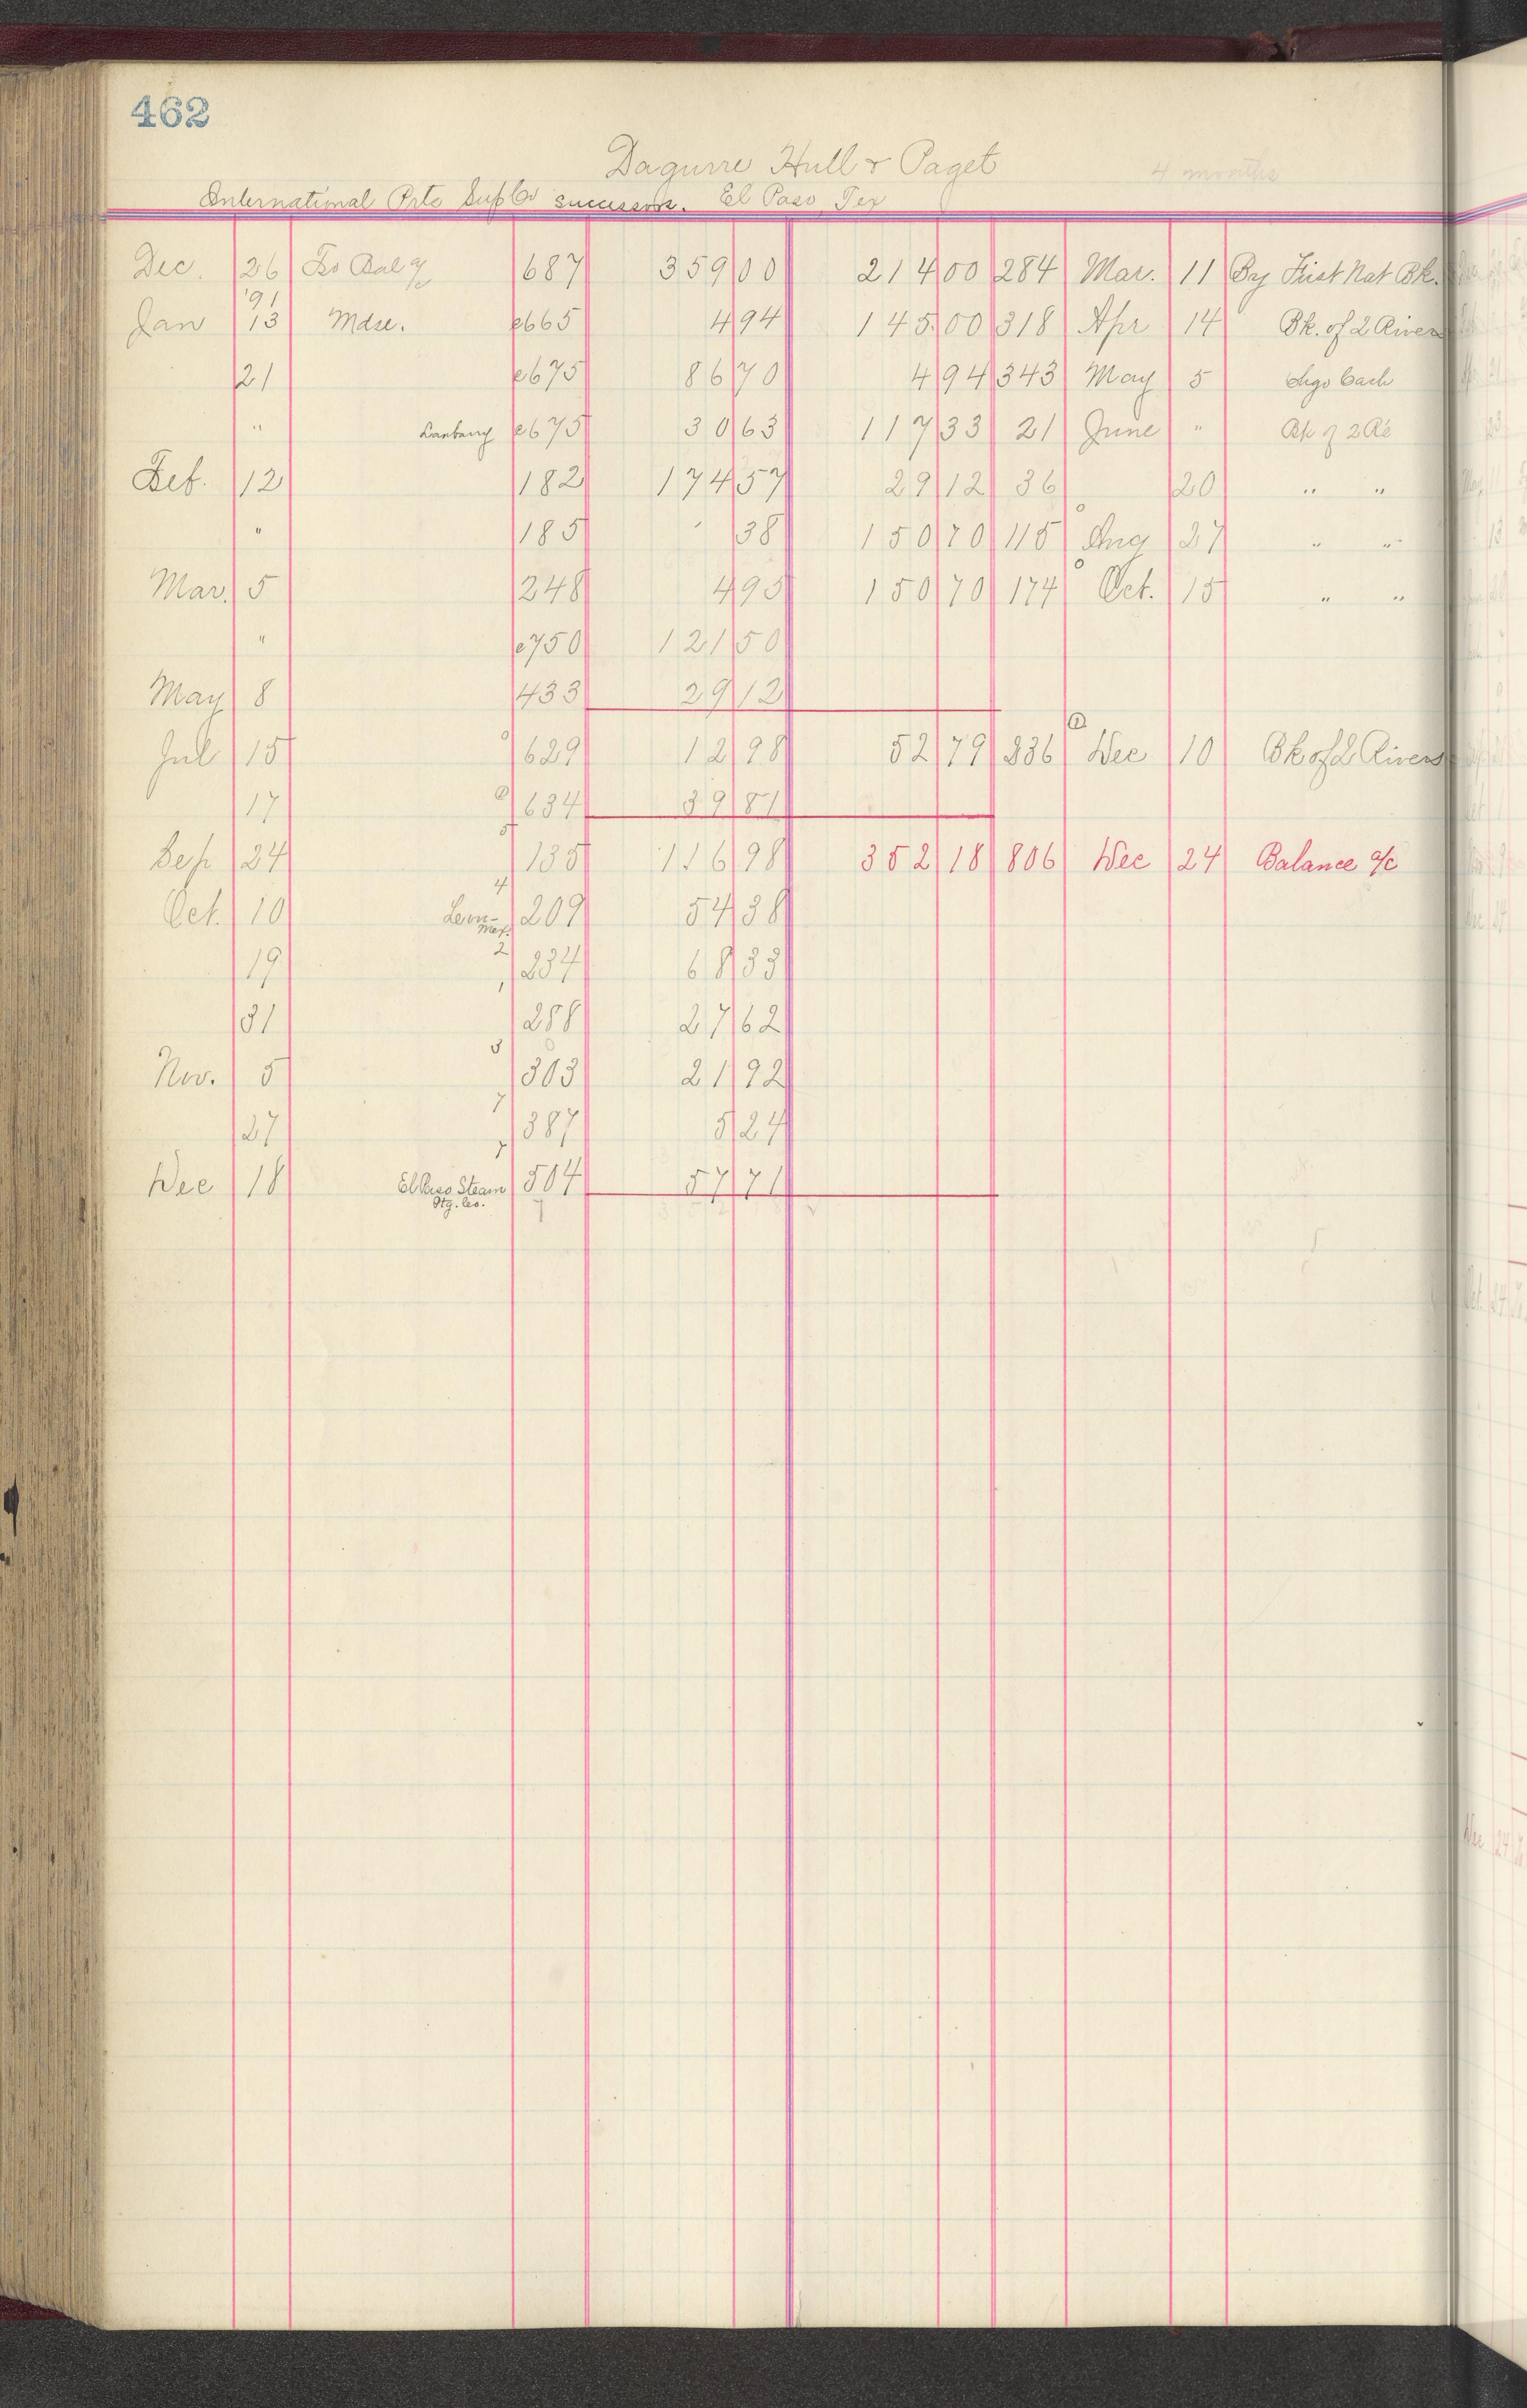 462
Dagurre Hull & Paget
4 months
International Prtc Sup Co successors. El Paso, Tex
Dec. 26 To Bal a/c 687 359 00 214 00 284 Mar. 11 By First Nat Bk.
'91
Jan 13 Mdse. e665 4 94 145 00 318 Apr 14 Bk. of 2 Rivers
21 e675 86 70 4 94 343 May 5 Chgo Cash
" e675 30 63 117 33 21 June " Bk of 2 Rs
Feb. 12 182 174 57 29 12 36 20 " "
" 185 38 150 70 115 Aug 27 " "
Mar. 5 248 4 95 150 70 174 Oct. 15 " "
" e750 121 50
May 8 433 29 12
Jul 15 629 12 98 52 79 236 Dec 10 Bk of 2 Rivers
17 634 39 81
5
Sep 24 135 116 98 352 18 806 Dec 24 Balance a/c
4
Oct. 10 Leon- Mex. 209 54 38
2
19 234 68 33
1
31 288 27 62
3
Nov. 5 303 21 92
7
27 387 5 24
7
Dec 18 El Paso Steam 504 57 71